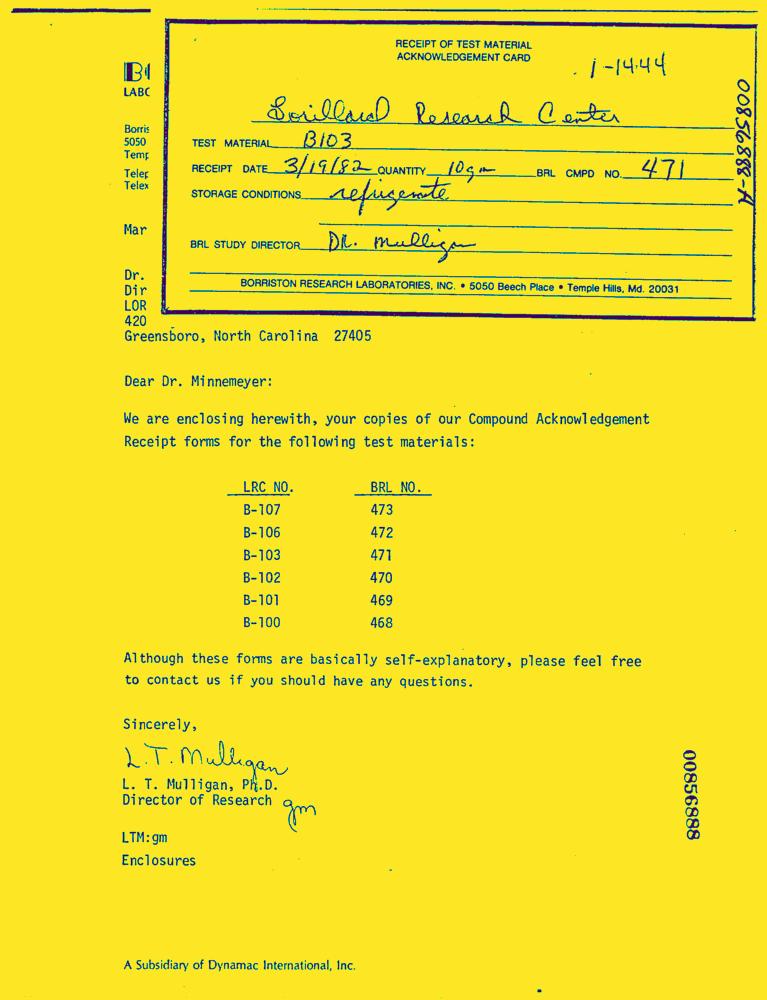 RECEIPT OF TEST MATERIAL
ACKNOWLEDGEMENT CARD
1-1444
Lorillard Research Center
TEST MATERIAL B103
RECEIPT DATE 3/19/82 QUANTITY 10gm BRL CMPD NO. 471
STORAGE CONDITIONS refrigerate
BRL STUDY DIRECTOR DR. Mulligan
BORRISTON RESEARCH LABORATORIES, INC. • 5050 Beech Place • Temple Hills, Md. 20031
00856888-A
LABC
Borris
5050
Temp
Telep
Telex
Mar
Dr.
Dir
LOR
420
Greensboro, North Carolina 27405
Dear Dr. Minnemeyer:
We are enclosing herewith, your copies of our Compound Acknowledgement
Receipt forms for the following test materials:
LRC NO. BRL NO.
B-107 473
B-106 472
B-103 471
B-102 470
B-101 469
B-100 468
Although these forms are basically self-explanatory, please feel free
to contact us if you should have any questions.
Sincerely,
L.T. Mulligan
L. T. Mulligan, Ph.D.
Director of Research gm
LTM:gm
Enclosures
00856888
A Subsidiary of Dynamac International, Inc.